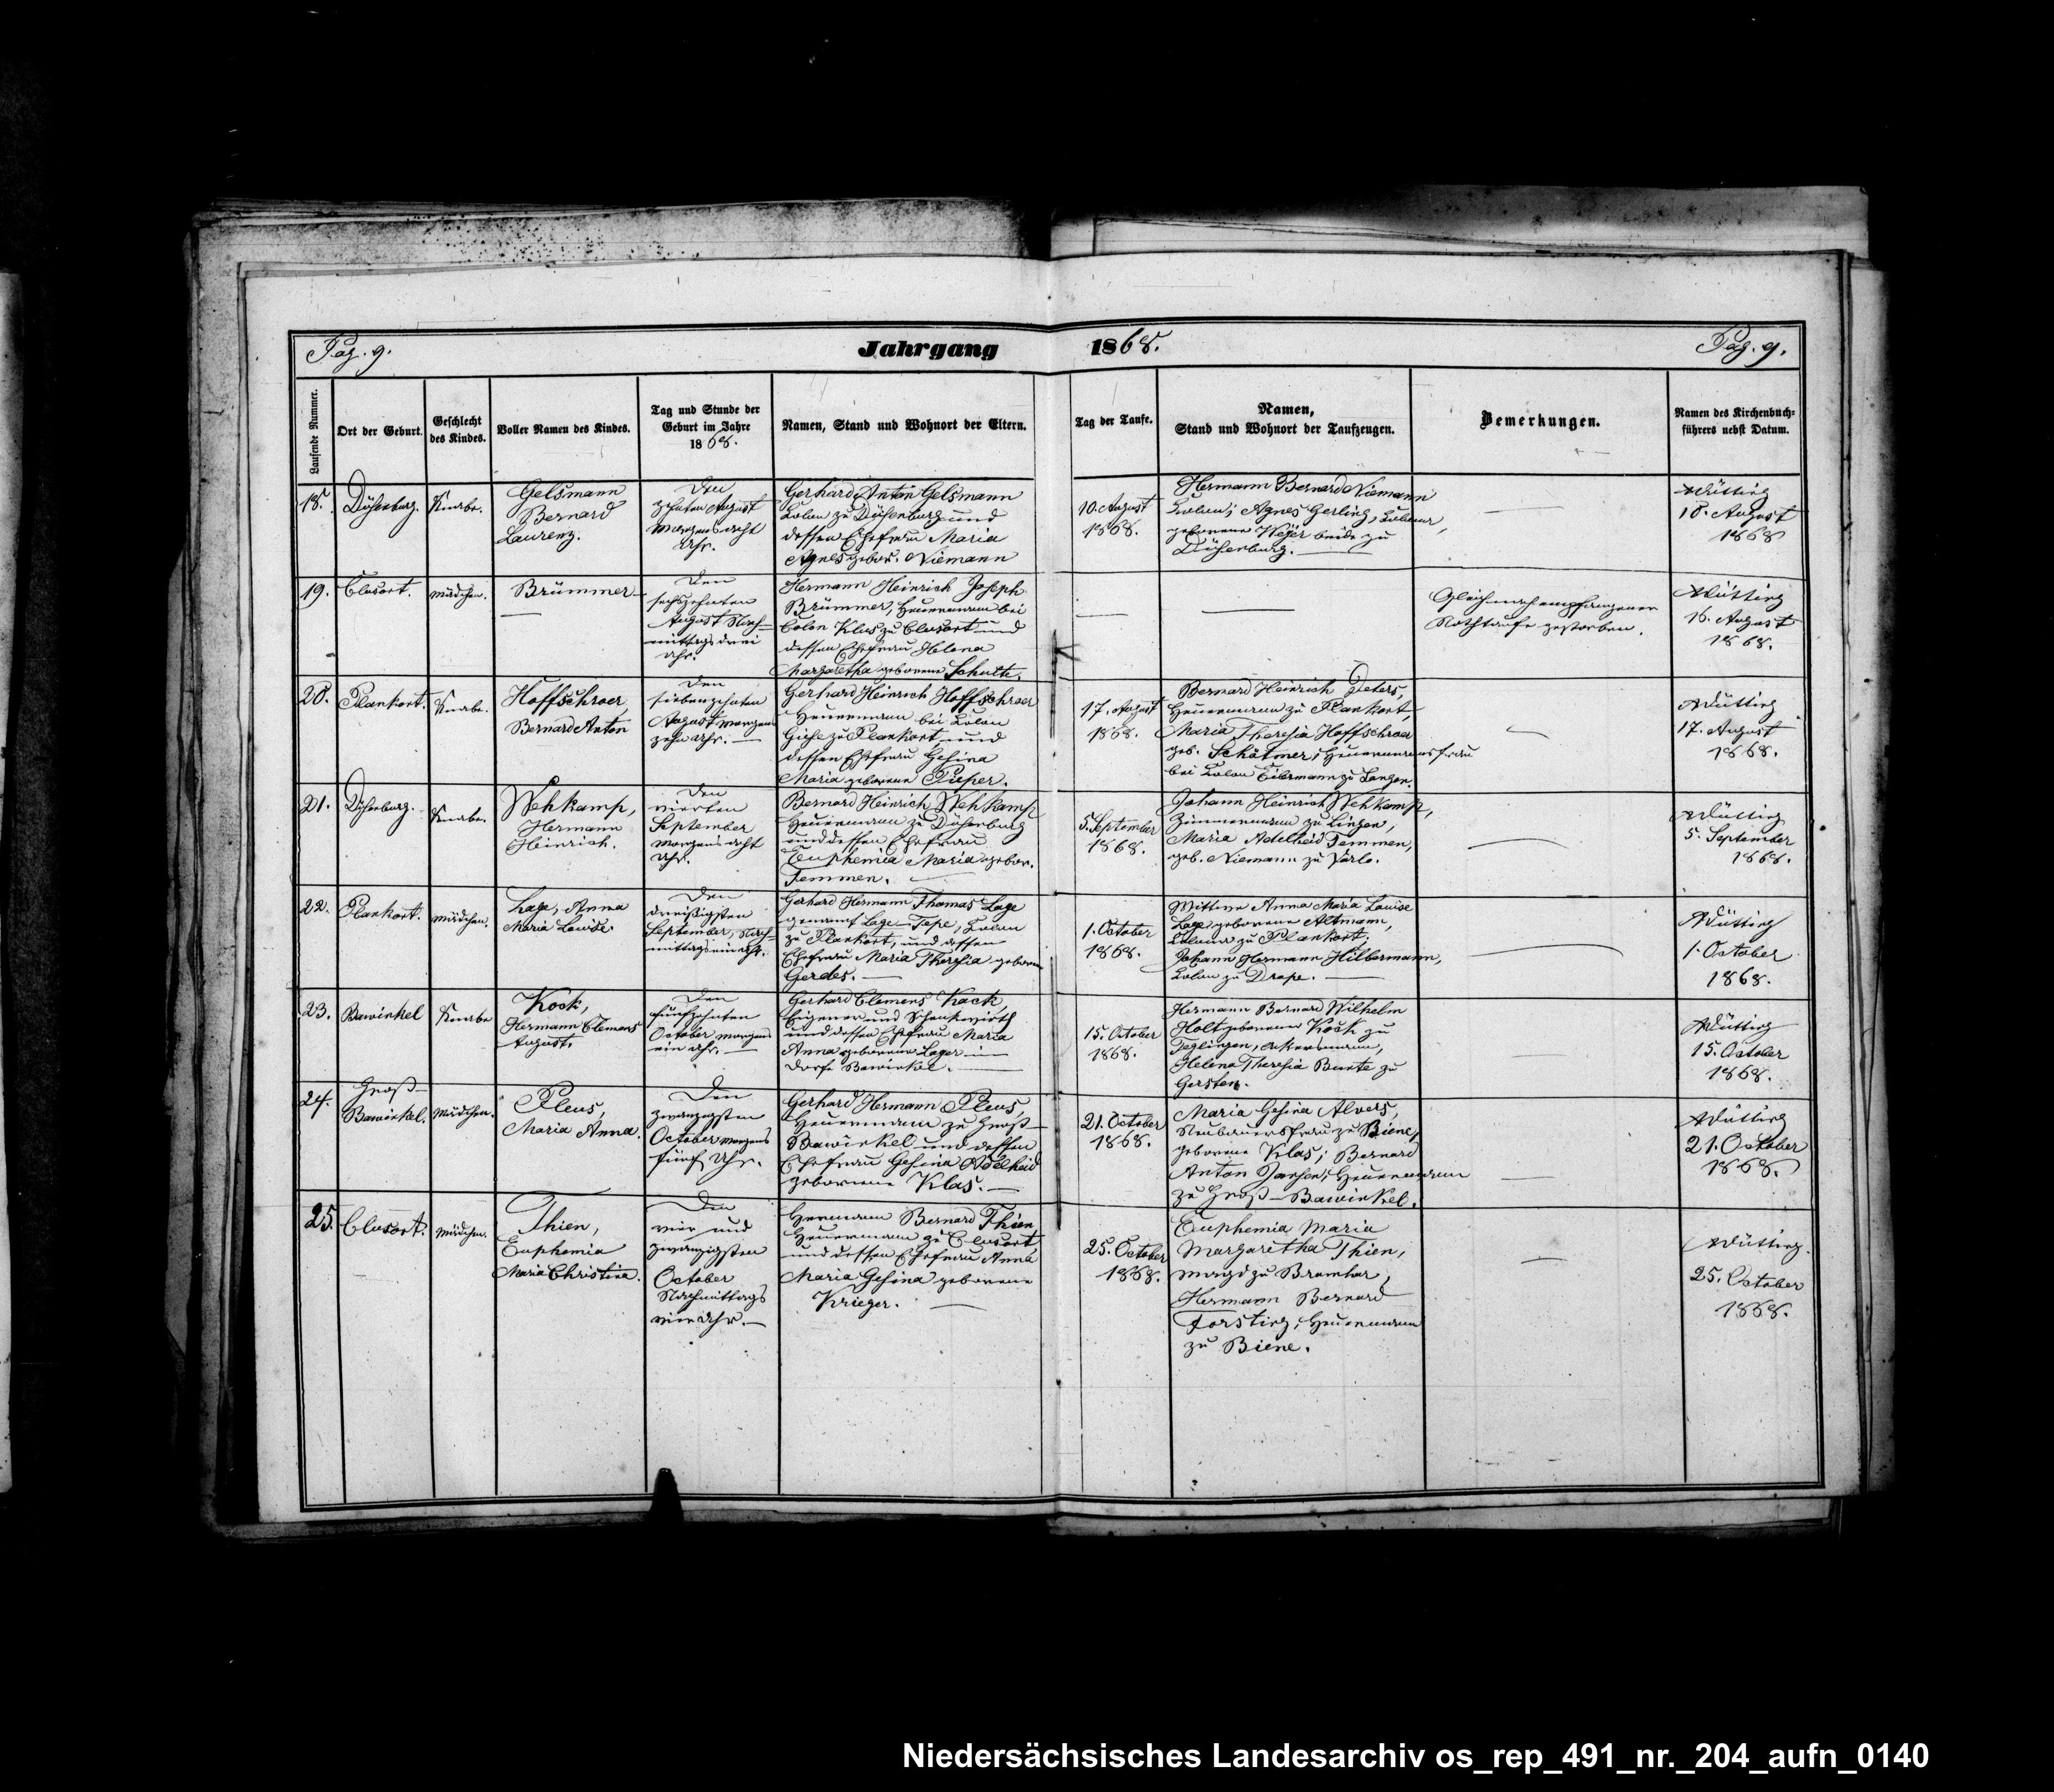 Pag. 9.
Jahrgang 1868.
Pag. 9.
Laufende Nummer.
Ort der Geburt.
Geschlecht
des Kindes.
Voller Namen des Kindes.
Tag und Stunde der
Geburt im Jahre
1868.
Namen, Stand und Wohnort der Eltern.
Tag der Taufe.
Namen,
Stand und Wohnort der Taufzeugen.
Bemerkungen.
Namen des Kirchenbuch-
führers nebst Datum.
18.
Duisenburg.
Knabe.
Gelsmann
Bernard
Laurenz.
Den
zehnten August
Morgens acht
Uhr.
Gerhard Anton Gelsmann
Colon zu Duisenburg und
dessen Ehefrau Maria
Agnes gebor. Niemann
10. August
1868.
Hermann Bernard Niemann
Colon; Agnes Gerling, Colona,
geborene Weijer beide zu
Duisenburg.
18. August
1868
19.
Clusort.
Mädchen.
Brümmer
Den
sechszehnten
August Nach-
mittags drei
Uhr.
Hermann Heinrich Joseph
Brümmer, Heuermann bei
Colon Klus zu Clusort und
dessen Ehefrau Helena
Margaretha geborene Schulte.
Gleich nach empfangener
Nothtaufe gestorben.
16. August
1868.
20.
Plankort.
Knabe.
Hoffschroer,
Bernard Anton
Den
siebenzehnten
August Morgens
zehn Uhr.
Gerhard Heinrich Hoffschroer
Heuermann bei Colon
zu Plankort und
dessen Ehefrau Gesina
Maria geborene Pieper.
17. August
1868.
Bernard Heinrich Peters,
Heuermann zu Plankort,
Maria Theresia Hoffschroer
geb. Heuermannsfrau
bei Colon Eilermann zu Langen.
17. August
1868.
21.
Duisenburg.
Knabe.
Wehkamp,
Hermann
Heinrich.
Den
vierten
September
Morgens acht
Uhr.
Bernard Heinrich Wehkamp
Heuermann zu Duisenburg
und dessen Ehefrau
Euphemia Maria gebor.
Temmen.
5. September
1868.
Johann Heinrich Wehkamp,
Zimmermann zu Lingen,
Maria Adelheid Temmen,
geb. Niemann zu Varlo.
5. September
1868.
22.
Plankort.
Mädchen.
Lage, Anna
Maria Louise.
Den
dreißigsten
September, Nach-
mittags ein Uhr.
Gerhard Hermann Thomas Lage
genannt Lage-Tepe, Colon
zu Plankort, und dessen
Ehefrau Maria Theresia geborene
Gerdes.
1. October
1868.
Wittwe Anna Maria Louise
Lage geborene Altmann,
Colona zu Plankort.
Johann Hermann Hilbermann,
Colon zu Drope.
1. October
1868.
23.
Bawinkel
Knabe
Kock,
Hermann Clemens
August.
Den
fünfzehnten
October Morgens
ein Uhr.
Gerhard Clemens Kock,
Eigener und Schenkwirth
und dessen Ehefrau Maria
Anna geborene Lager im
Dorfe Bawinkel.
15. October
1868.
Hermann Bernard Wilhelm
Holt geborener Kock zu
Teglingen, Akersmann,
Helena Theresia Bunte zu
Gersten.
15. October
1868.
24.
Groß-
Bawinkel.
Mädchen.
Pleus,
Maria Anna.
Den
zwanzigsten
October Morgens
fünf Uhr.
Gerhard Hermann Pleus,
Heuermann zu Groß-
Bawinkel und dessen
Ehefrau Gesina Adelheid
geborene Klas.
21. October
1868.
Maria Gesina Alvers,
Neubauersfrau zu Biene,
geborene Klas; Bernard
Anton Jansen, Heuermann
zu Groß-Bawinkel.
21. October
1868.
25.
Clusort.
Mädchen.
Thien,
Euphemia
Maria Christina.
Den
vier und
zwanzigsten
October
Nachmittags
vier Uhr.
Hermann Bernard Thien
Heuermann zu Clusort
und dessen Ehefrau Anna
Maria Gesina geborene
Krieger.
25. October
1868.
Euphemia Maria
Margaretha Thien,
Magd zu Bramhar,
Hermann Bernard
Forsting, Heuermann
zu Biene.
25. October
1868.
Niedersächsisches Landesarchiv os_rep_491_nr._204_aufn_0140